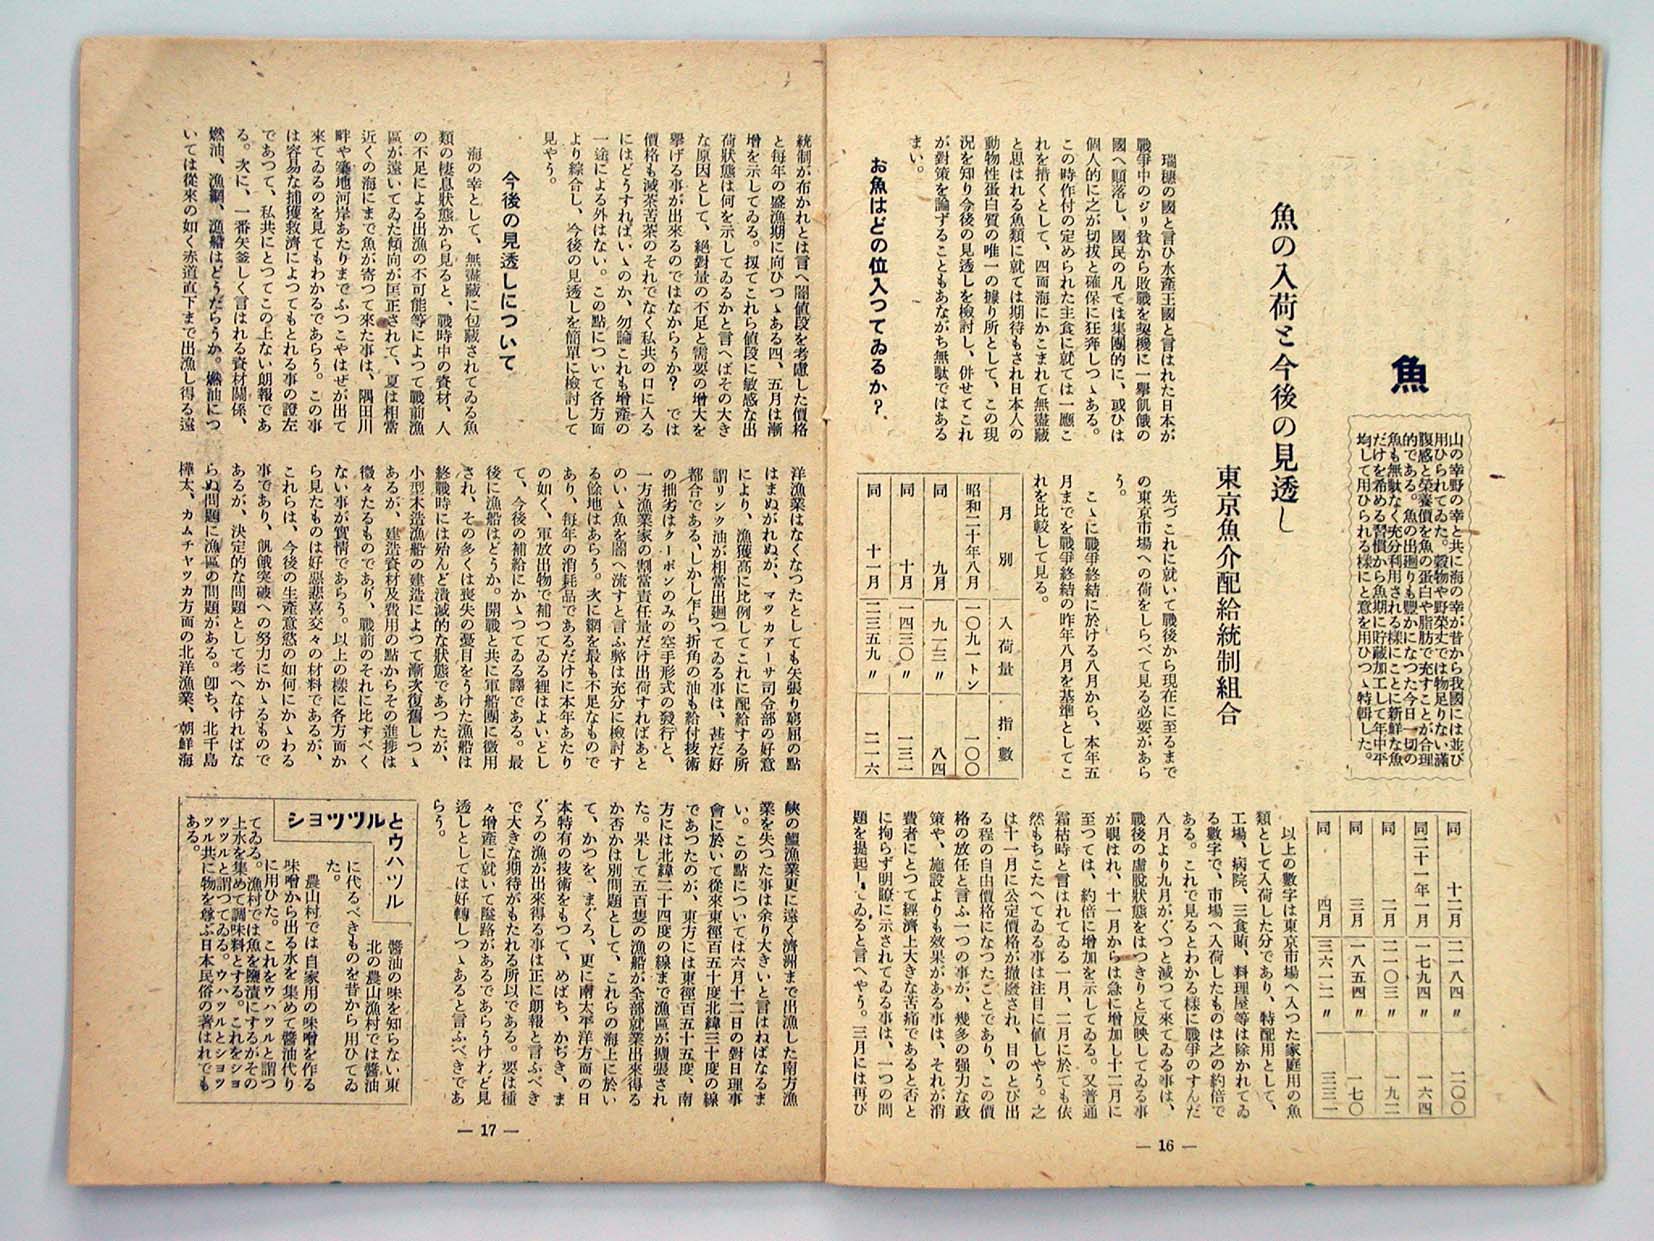 魚
山の幸野の幸と共に海の幸が昔から我國には並び
用ひられてゐた。穀物や野菜丈では物足りない滿
腹感と榮養價を魚の蛋白や脂肪で充すことが合理
的である。魚の出廻りも豐かになつた今日一切の
魚も無駄なく充分利用される樣にことに新鮮な魚
だけを希める習慣から魚期に貯蔵加工して年中平
均して用ひられる樣にと意を用ひつゝ特輯した。
魚の入荷と今後の見透し
東京魚介配給統制組合
瑞穗の國と言ひ水産王國と言はれた日本が
戰爭中のジリ貧から敗戰を契機に一擧飢餓の
國へ顚落し、國民の凡ては集團的に、或ひは
個人的に之が切拔と確保に狂奔しつゝある。
この時作付の定められた主食に就ては一應こ
れを措くとして、四面海にかこまれて無盡蔵
と思はれる魚類に就ては期待もされ日本人の
動物性蛋白質の唯一の據り所として、この現
況を知り今後の見透しを檢討し、併せてこれ
が對策を論ずることもあながち無駄ではある
まい。
お魚はどの位入つてゐるか?
先づこれに就いて戰後から現在に至るまで
の東京市場への荷をしらべて見る必要があら
う。
こゝに戰爭終結に於ける八月から、本年五
月までを戰爭終結の昨年八月を基準としてこ
れを比較して見る。
月別 入荷量 指數
昭和二十年八月 一〇九一トン 一〇〇
同 九月 九一三〃 八四
同 十月 一四三〇〃 一三一
同 十一月 二三五九〃 二一六
同 十二月 二一八四〃 二〇〇
同二十一年一月 一七九四〃 一六四
同 二月 二一〇三〃 一九二
同 三月 一八五四〃 一七〇
同 四月 三六一二〃 三三一
以上の數字は東京市場へ入つた家庭用の魚
類として入荷した分であり、特配用として、
工場、病院、三食賄、料理屋等は除かれてゐ
る數字で、市場へ入荷したものは之の約倍で
ある。これで見るとわかる樣に戰爭のすんだ
八月より九月がぐつと減つて來てゐる事は、
戰後の虛脫狀態をはつきりと反映してゐる事
が覗はれ、十一月からは急に增加し十二月に
至つては、約倍に增加を示してゐる。又普通
霜枯時と言はれてゐる一月、二月に於ても依
然もちこたへてゐる事は注目に値しやう。之
は十一月に公定價格が撤廢され、目のとび出
る程の自由價格になつたことであり、この價
格の放任と言ふ一つの事が、幾多の强力な政
策や、施設よりも效果がある事は、それが消
費者にとつて經濟上大きな苦痛であると否と
に拘らず明瞭に示されてゐる事は、一つの問
題を提起してゐると言へやう。三月には再び
— 16 —
統制が布かれとは言へ闇値段を考慮した價格
と每年の盛漁期に向ひつゝある四、五月は漸
增を示してゐる。扨てこれら値段に敏感な出
荷狀態は何を示してゐるかと言へばその大き
な原因として、絕對量の不足と需要の增大を
擧げる事が出來るのではなからうか? では
價格も滅茶苦茶のそれでなく私共の口に入る
にはどうすればいゝのか、勿論これも增産の
一途による外はない。この點について各方面
より綜合し、今後の見透しを簡單に檢討して
見やう。
今後の見透しについて
海の幸として、無盡藏に包藏されてゐる魚
類の棲息狀態から見ると、戰時中の資材、人
の不足による出漁の不可能等によつて戰前漁
區が遠いてゐた傾向が匡正されて、夏は相當
近くの海にまで魚が寄つて來た事は、隅田川
畔や築地河岸あたりまでふつこやはぜが出て
來てゐるのを見てもわかるであらう。この事
は容易な捕獲救濟によつてもとれる事の證左
であつて、私共にとつてこの上ない朗報であ
る。次に、一番矢釜しく言はれる資材關係、
燃油、漁網、漁船はどうだらうか。燃油につ
いては從來の如く赤道直下まで出漁し得る遠
洋漁業はなくなつたとしても矢張り窮屈の點
はまぬがれぬが、マツカアーサ司令部の好意
により、漁獲高に比例してこれに配給する所
謂リンク油が相當出廻つてゐる事は、甚だ好
都合である、しかし乍ら、折角の油も給付技術
の拙劣はクーポンのみの空手形式の發行と、
一方漁業家の割當責任量だけ出荷すればあと
のいゝ魚を闇へ流すと言ふ弊は充分に檢討す
る餘地はあらう。次に網を最も不足なもので
あり、每年の消耗品であるだけに本年あたり
の如く、軍放出物で補つてゐる裡はよいとし
て、今後の補給にかゝつてゐる譯である。最
後に漁船はどうか。開戰と共に軍船團に徵用
され、その多くは喪失の憂目をうけた漁船は
終戰時には殆んど潰滅的な狀態であつたが、
小型木造漁船の建造によつて漸次復舊しつゝ
あるが、建造資材及費用の點からその進捗は
微々たるものであり、戰前のそれに比すべく
ない事が實情であらう。以上の樣に各方面か
ら見たものは好惡悲喜交々の材料であるが、
これらは、今後の生産意慾の如何にかゝわる
事であり、飢餓突破への努力にかゝるもので
あるが、決定的な問題として考へなければな
らぬ問題に漁區の問題がある。卽ち、北千島
樺太、カムチヤツカ方面の北洋漁業、朝鮮海
峽の鰮漁業更に遠く濟洲まで出漁した南方漁
業を失つた事は余り大きいと言はねばなるま
い。この點については六月十二日の對日理事
會に於いて從來東徑百五十度北緯三十度の線
であつたのが、東方には東徑百五十五度、南
方には北緯二十四度の線まで漁區が擴張され
た。果して五百隻の漁船が全部就業出來得る
か否かは別問題として、これらの海上に於い
て、かつを、まぐろ、更に南太平洋方面の日
本特有の技術をもつて、めばち、かぢき、ま
ぐろの漁が出來得る事は正に朗報と言ふべき
で大きな期待がもたれる所以である。要は種
々增産に就いて隘路があるであらうけれど見
透しとしては好轉しつゝあると言ふべきであ
らう。
ショッツルとウハツル
醬油の味を知らない東
北の農山漁村では醬油
に代るべきものを昔から用ひてゐ
た。
農山村では自家用の味噌を作る
味噌から出る水を集めて醬油代り
に用ひた。これをウハツルと謂つ
てゐる。漁村では魚を鹽漬にするがその
上水を集めて調味料とする。これをショ
ッツルと謂つてゐる。ウハツルとショッ
ツル共に物を尊ぶ日本民俗の著はれでも
ある。
— 17 —